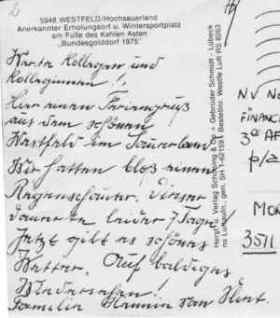 5948 WESTFELD/Hochsauerland
Anerkannter Erholungsort u. Wintersportplatz
am Fuße des Kahlen Asten
"Bundesgolddorf 1975"
Werte Kollegen und
Kolleginnen!
Hier einen Feriengruß
aus dem schönen
Westfeld im Sauerland
Wir hatten bloß einen
Regenschauer. Dieser
dauerte leider 7 Tage
Jetzt gibt es schönes
Wetter. Auf baldiges
Wiedersehen!
Familie van
Hergt. u. Verlag Schöning & Co + Gebrüder Schmidt - Lübeck
N.V. No
FINANC
3e AF
p/a
MO
3511